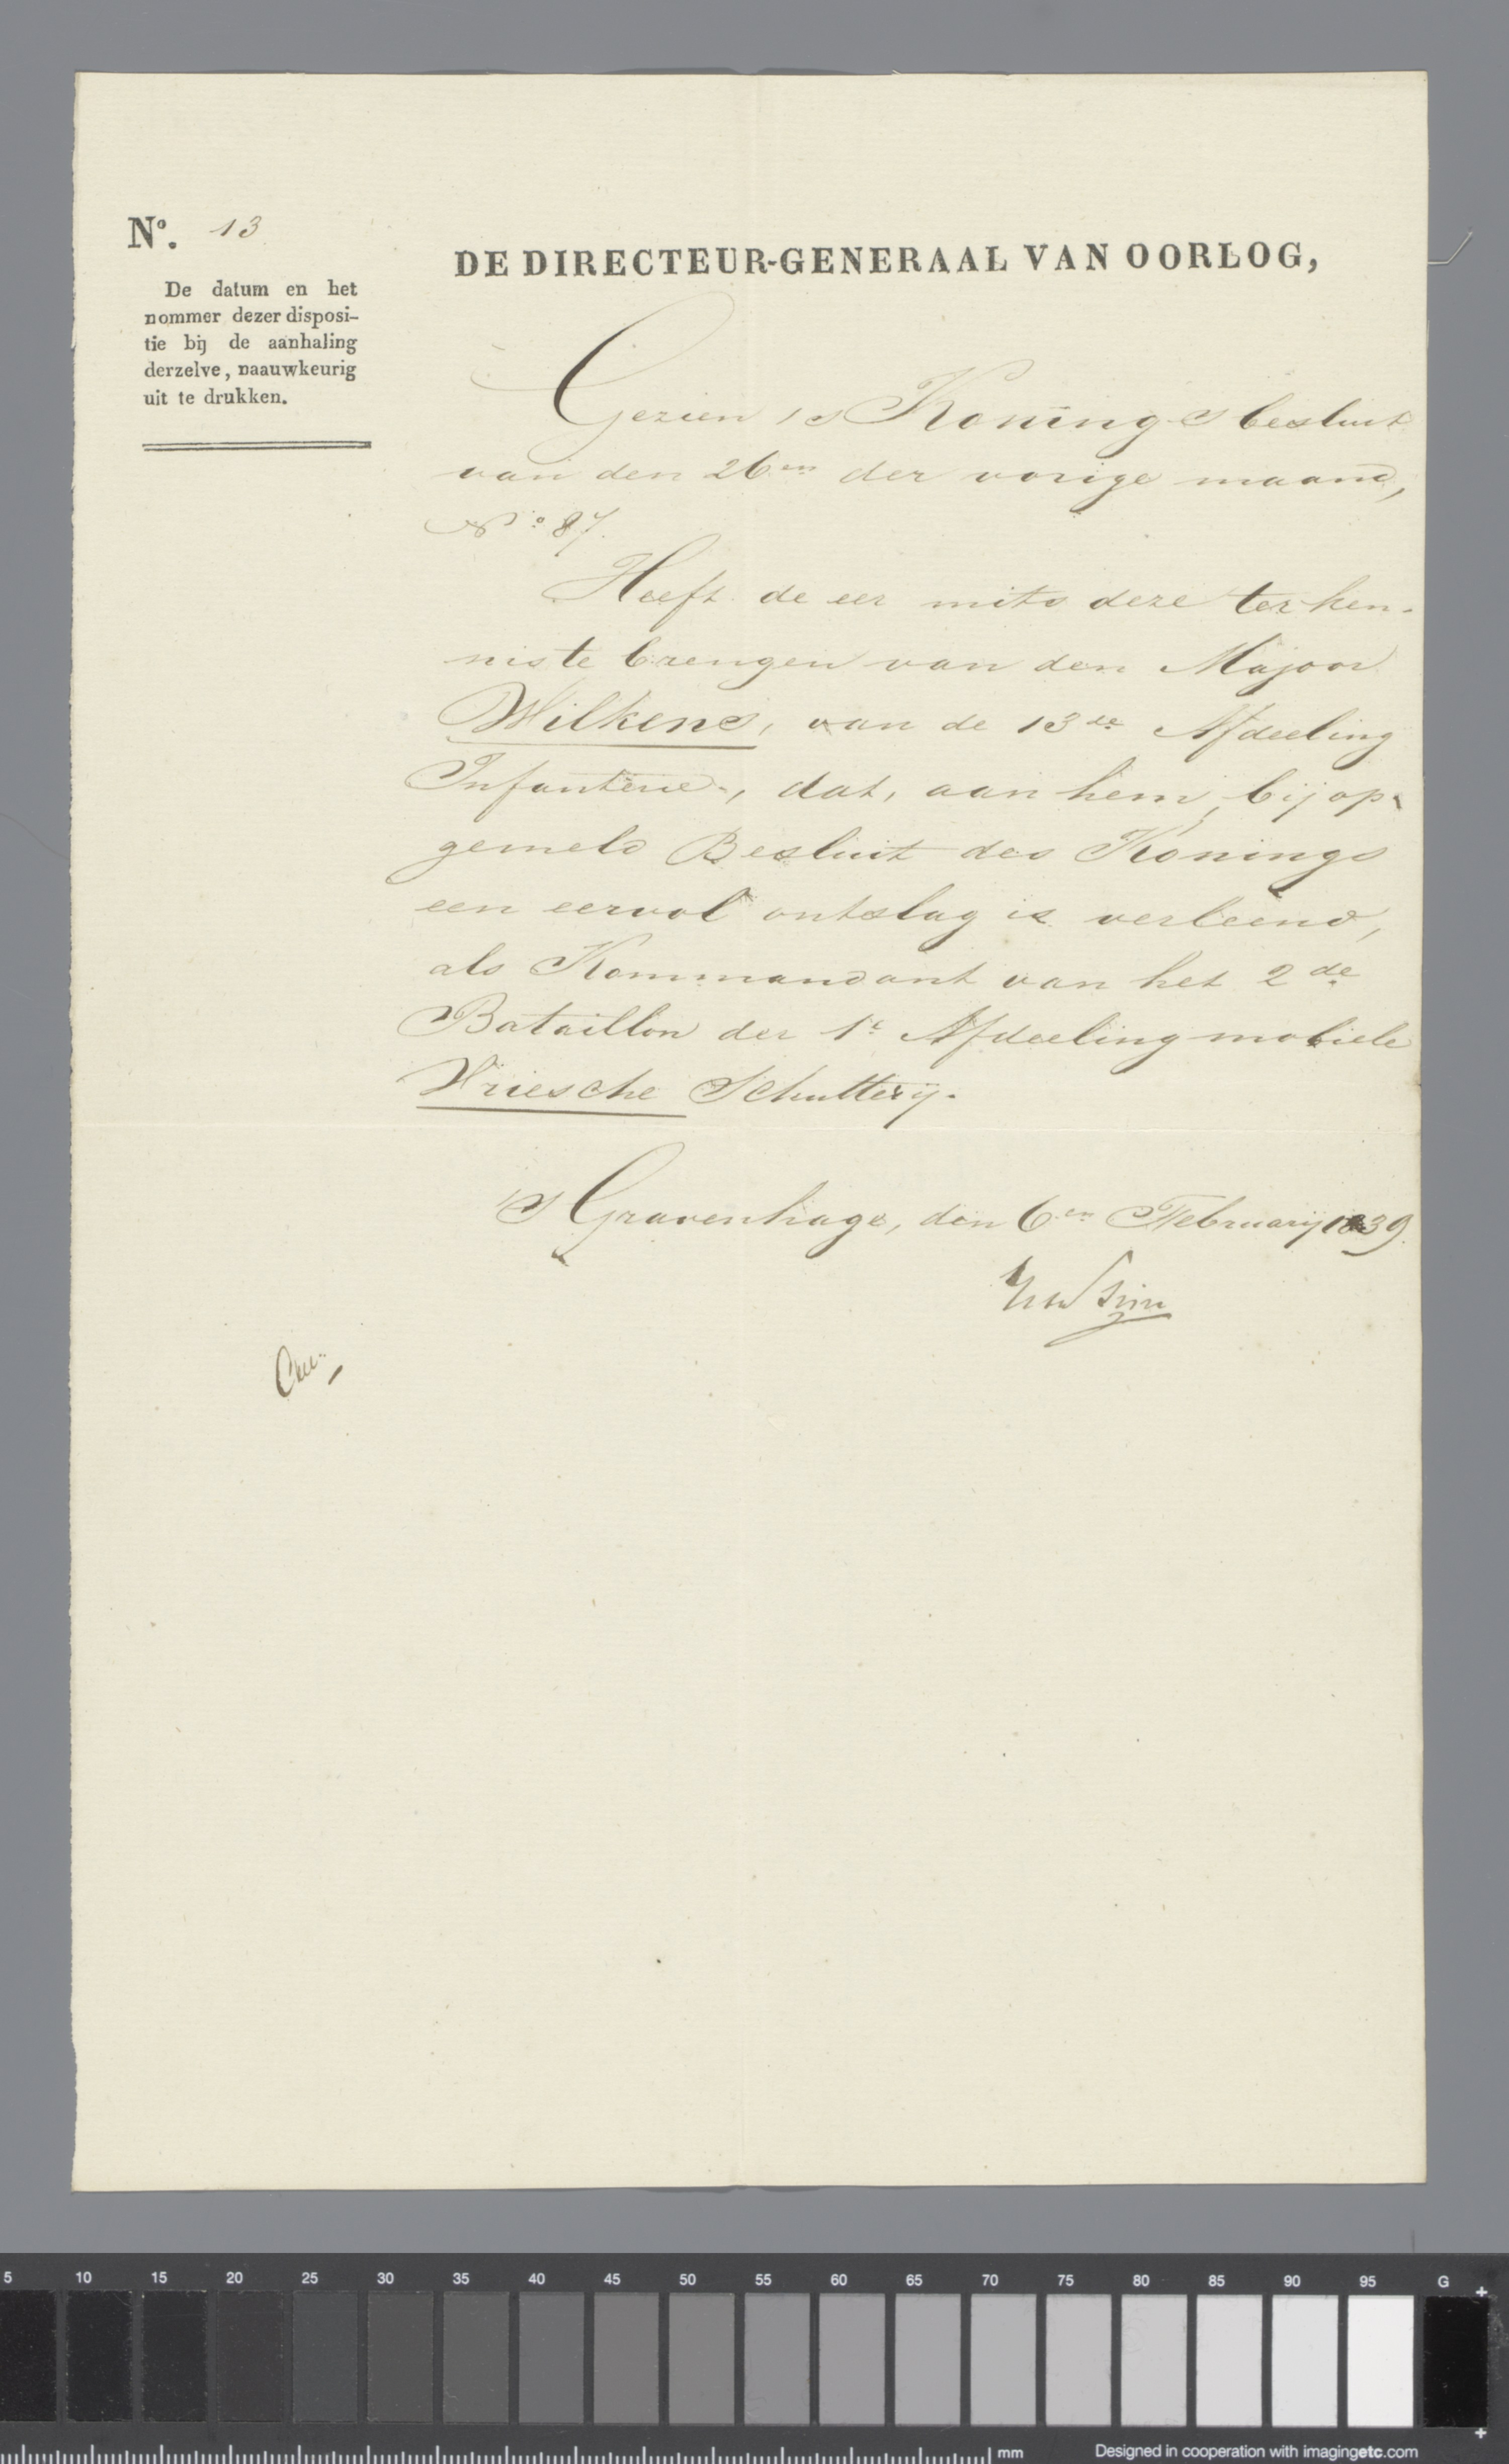 No. 13
De datum en het
nommer dezer disposi-
tie bij de aanhaling
derzelve, naauwkeurig
uit te drukken.
DE DIRECTEUR-GENERAAL VAN OORLOG,
Gezien 's Konings besluit
van den 26en der vorige maand,
No. 87.
Heeft de eer mits deze ter ken-
nis te brengen van den Majoor
Wilkens, van de 13de Afdeeling
Infanterie, dat, aan hem, bij op-
gemeld Besluit des Konings
een eervol ontslag is verleend,
als Kommandant van het 2de
Bataillon der 1e Afdeeling mobiele
Vriesche Schutterij.
's Gravenhage, den 6en February 1839.
5 10 15 20 25 30 35 40 45 50 55 60 65 70 75 80 85 90 95 G
mm
Designed in cooperation with imagingetc.com